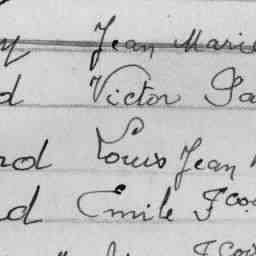 y Jean Marie
d Victor Pa
rd Louis Jean
d Emile Fcois